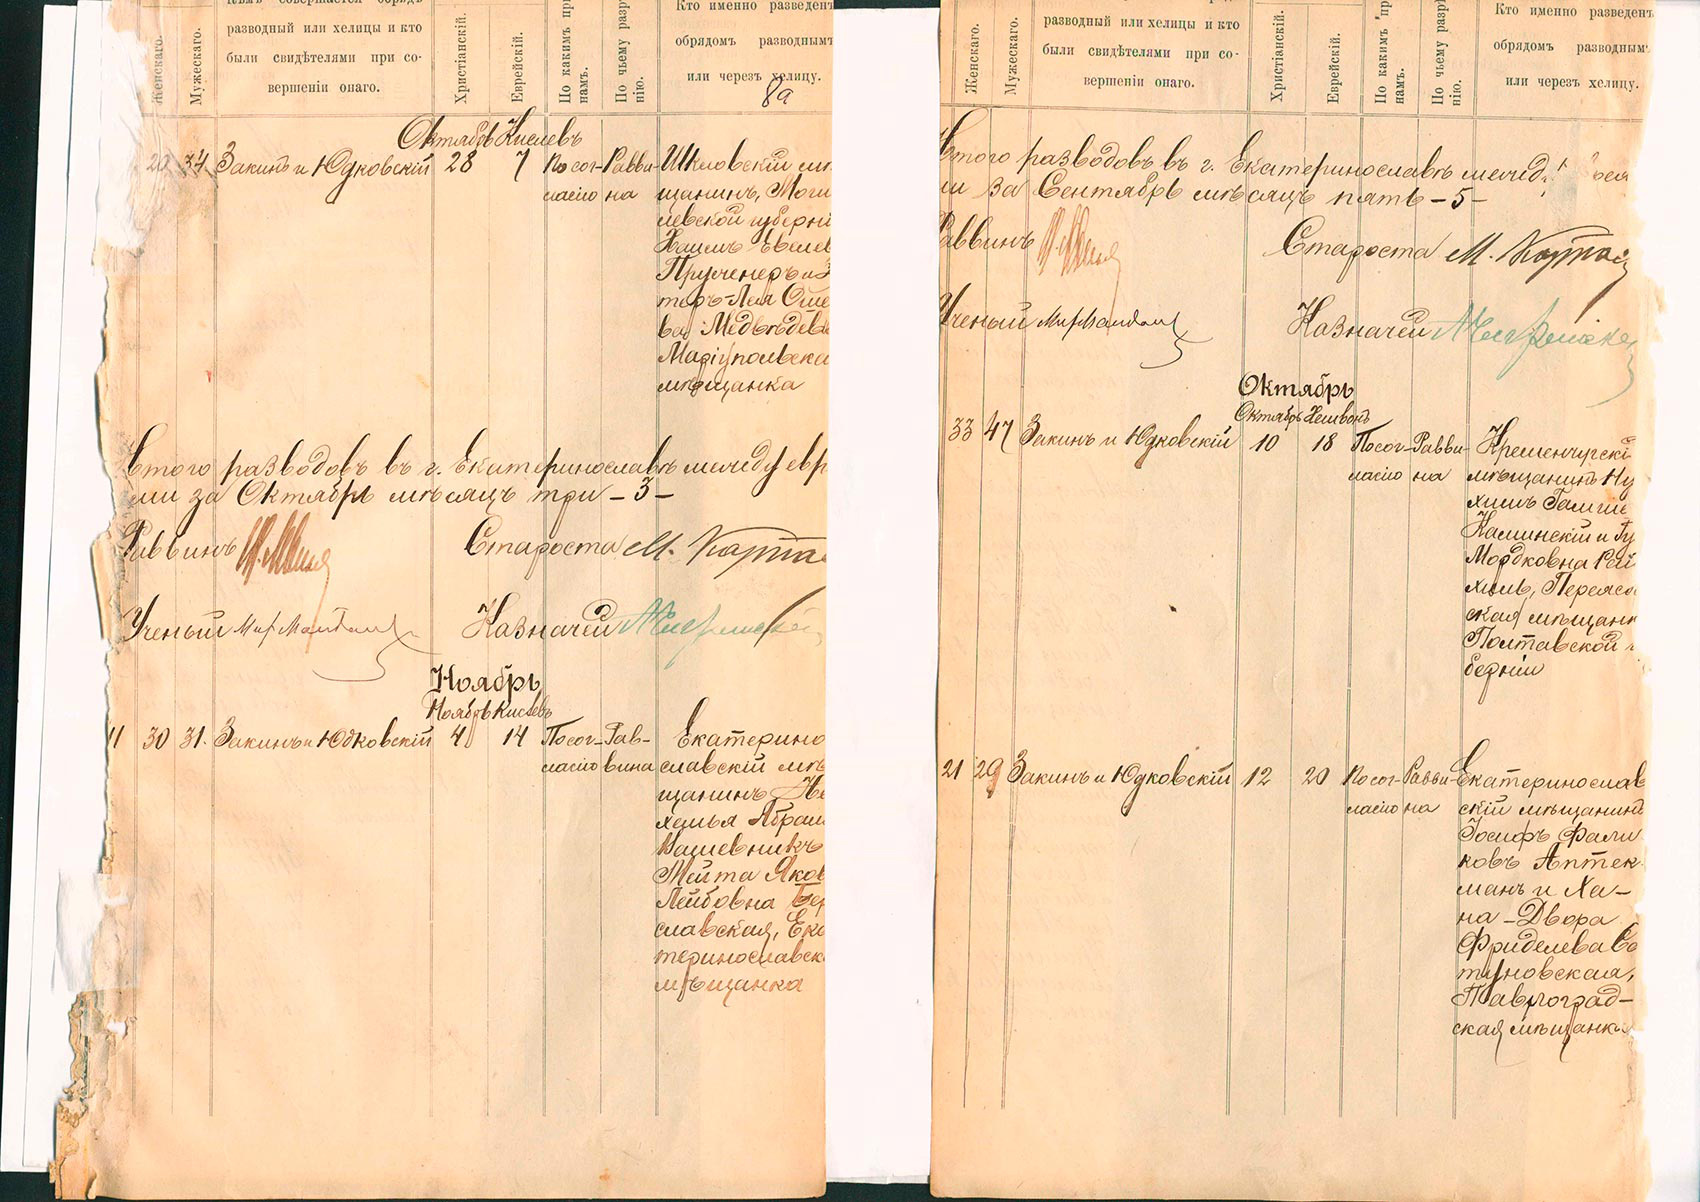 Женскаго.
Мужескаго.
Кѣмъ совершается обрядъ
разводный или хелицы и кто
были свидѣтелями при со-
вершеніи онаго.
Христіанскій.
Еврейскій.
По какимъ при
намъ.
По чьему разр
нію.
Кто именно разведенъ
обрядомъ разводнымъ
или черезъ хелицу.
8а
Октябрь Кислевъ
20 34 Закинъ и Юдковскій 28 7 По сог- Равви- Шкловскій мѣ
ласію на щанинъ, Моги
левской губерні
Хаимъ Евелев
теръ-Лея Оше
ва Медвѣдева
Маріупольска
мѣщанка
Этого разводовъ въ г. Екатеринославѣ между евр
ми за Октябрь мѣсяцъ три - 3 -
Раввинъ Староста М. Карпа
Ученый Казначей
Ноябрь
Ноябрь Кислевъ
11 30 31. Закинъ и Юдковскій 4 14 По сог- Рав- Екатерино
ласію вина славскій мѣ
щанинъ Не
хемья Абрам
Вашевникъ
Мейта Яков
Лейбовна Бер
славская, Ека
теринославск
мѣщанка
Женскаго.
Мужескаго.
разводный или хелицы и кто
были свидѣтелями при со-
вершеніи онаго.
Христіанскій.
Еврейскій.
По какимъ пр
намъ.
По чьему разр
нію.
Кто именно разведенъ
обрядомъ разводнымъ
или черезъ хелицу.
Этого разводовъ въ г. Екатеринославѣ межд
ми за Сентябрь мѣсяцъ пять - 5 -
Раввинъ Староста М.
Ученый Казначей
Октябрь
Октябрь Хешвонъ
33 47 Закинъ и Юдковскій 10 18 По сог- Равви- Кременчугскі
ласію на мѣщанинъ Ну
химъ
Каминскій и Гу
Мордковна Рай
хиль, Переясл
ская мѣщанк
Полтавской г
берніи
21 29 Закинъ и Юдковскій 12 20 По сог- Равви- Екатеринослав
ласію на скій мѣщанинъ
Іосифъ Фали
ковъ Аптек
манъ и Ха-
на-Двора
Фриделева Со
туновская,
Павлоград-
ская мѣщанка